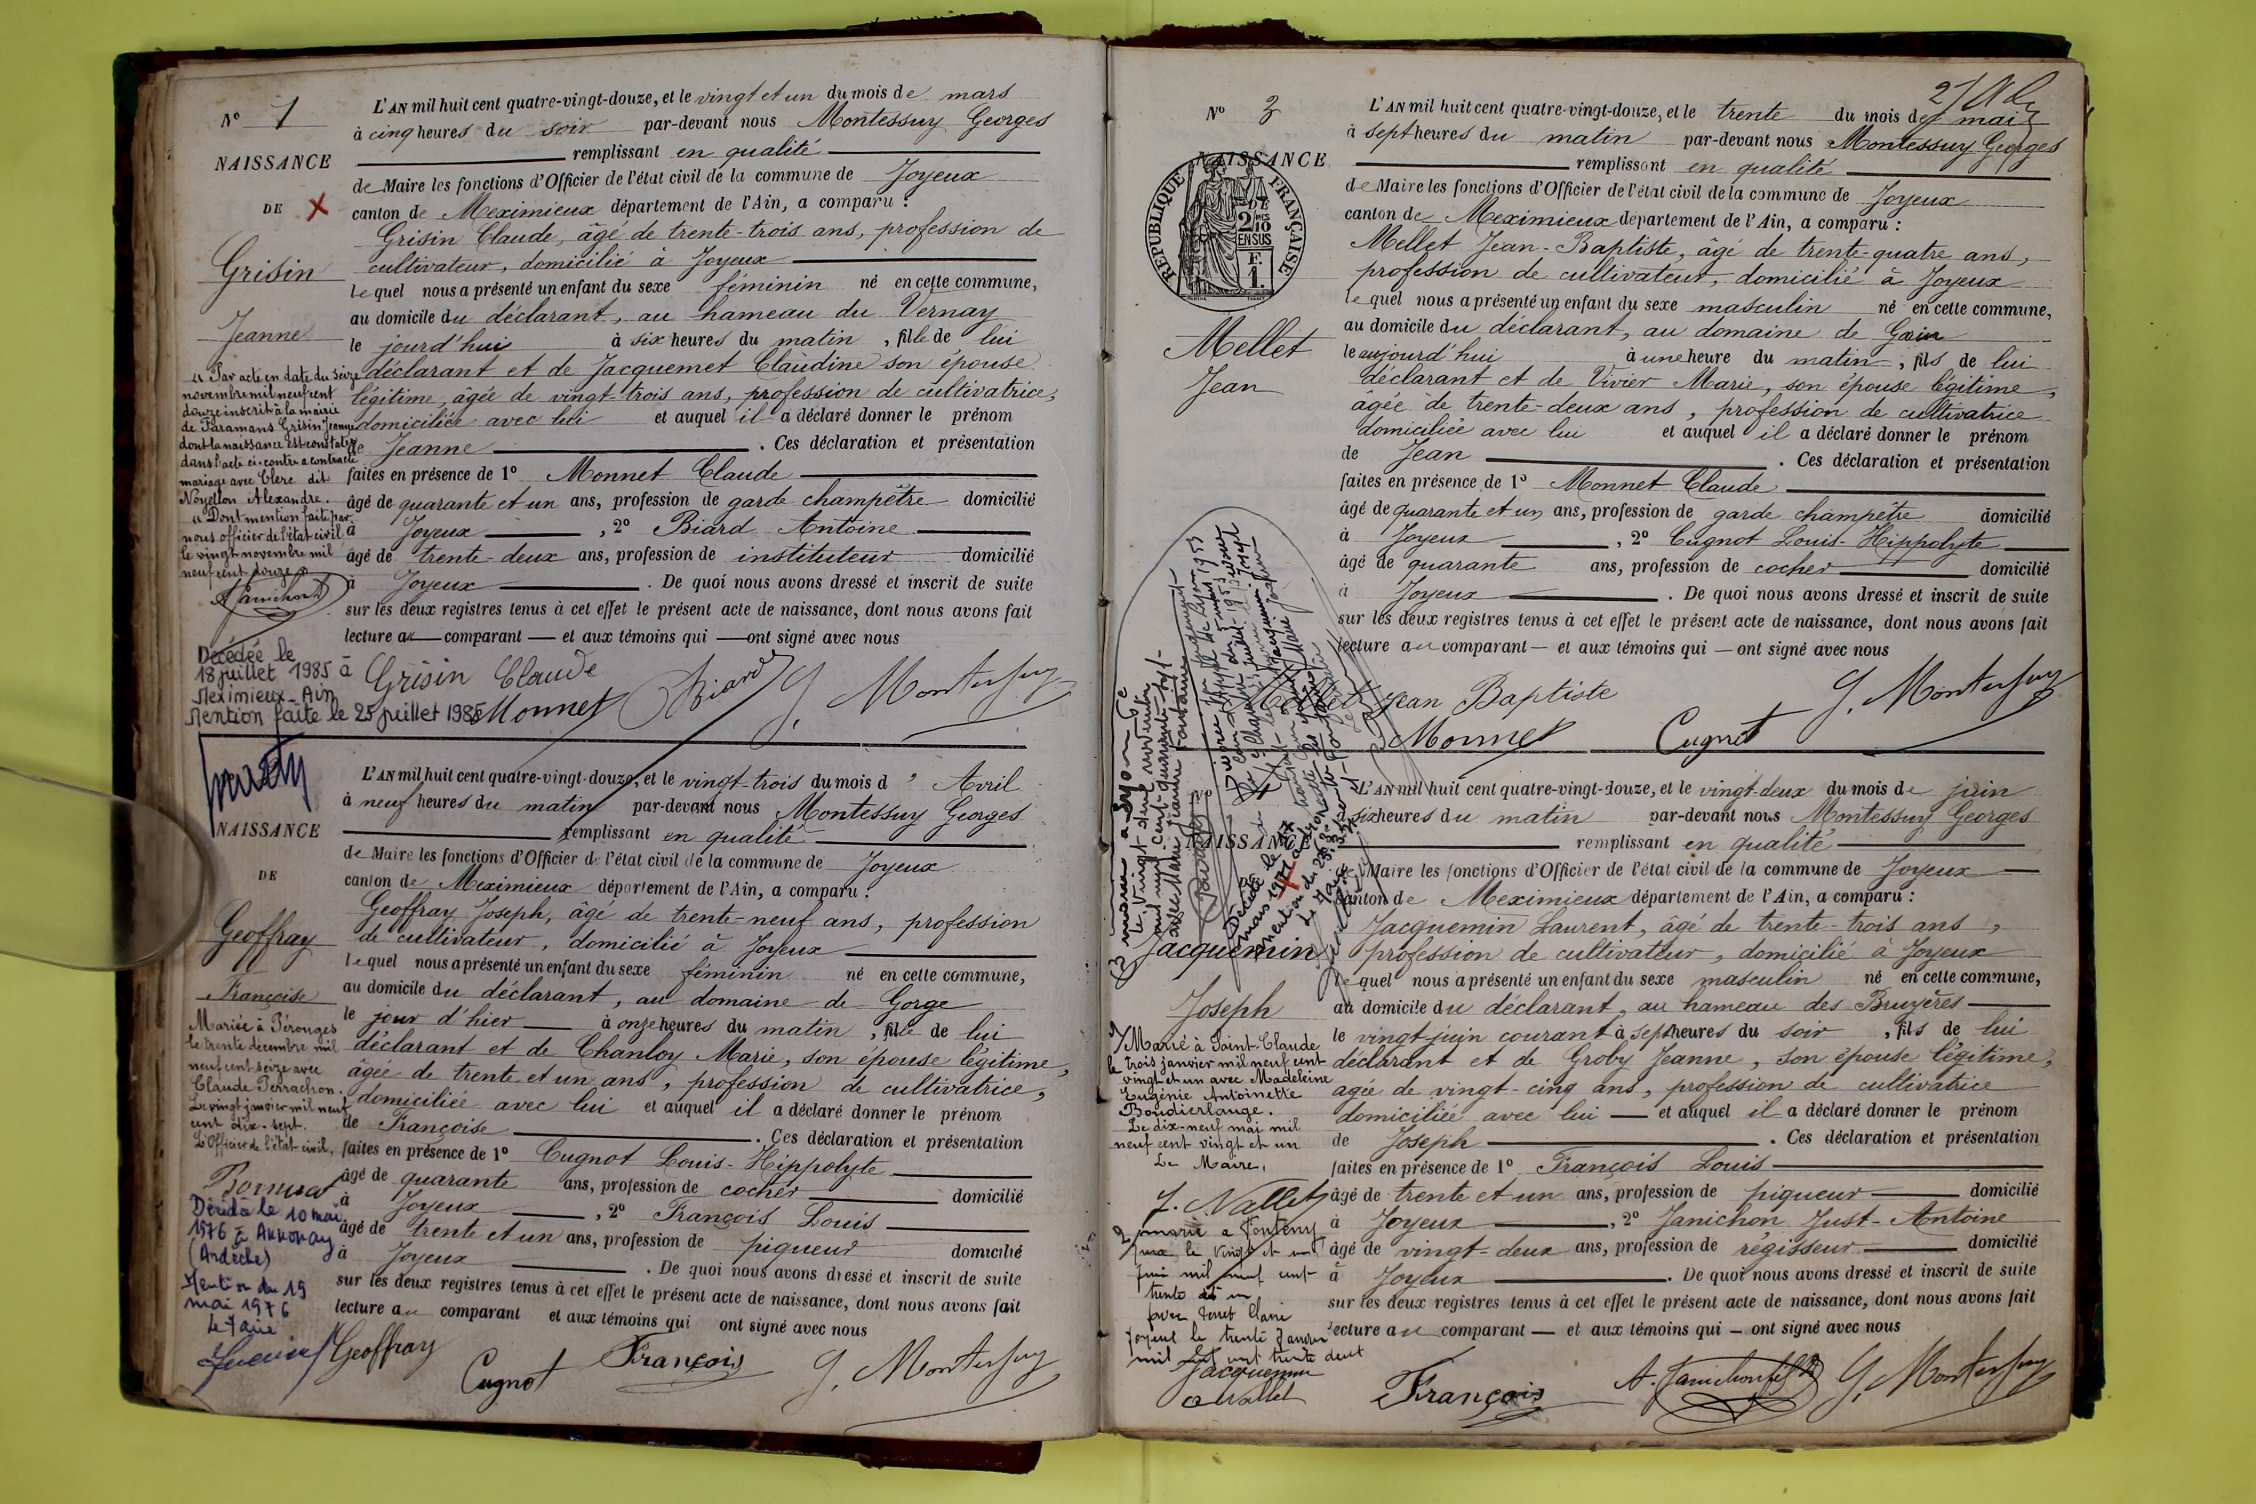 N° 1
NAISSANCE
DE X
Grisin
Jeanne
" Par acte en date du seize
novembre mil neuf cent
douze inscrit à la mairie
de Faramans Grisin Jeanne
dont la naissance est constatée
dans l'acte ci-contre a contracté
mariage avec Clerc dit
Noyellon Alexandre.
" Dont mention faite par
nous officier de l'état civil
le vingt novembre mil
neuf cent douze "
Décédée le
18 juillet 1985 à
Meximieux - Ain
Mention faite le 25 juillet 1985
L'AN mil huit cent quatre-vingt-douze, et le vingt et un du mois de mars
à cinq heures du soir par-devant nous Montessuy Georges
remplissant en qualité
de Maire les fonctions d'Officier de l'état civil de la commune de Joyeux
canton de Meximieux département de l'Ain, a comparu :
Grisin Claude, âgé de trente-trois ans, profession de
cultivateur, domicilié à Joyeux
lequel nous a présenté un enfant du sexe féminin né en cette commune,
au domicile du déclarant, au hameau du Vernay
le jourd'hui à six heures du matin, fille de lui
déclarant et de Jacquemet Claudine son épouse
légitime, âgée de vingt-trois ans, profession de cultivatrice,
domiciliée avec lui et auquel il a déclaré donner le prénom
de Jeanne. Ces déclaration et présentation
faites en présence de 1° Monnet Claude
âgé de quarante et un ans, profession de garde champêtre domicilié
à Joyeux, 2° Biard Antoine
âgé de trente-deux ans, profession de instituteur domicilié
à Joyeux. De quoi nous avons dressé et inscrit de suite
sur les deux registres tenus à cet effet le présent acte de naissance, dont nous avons fait
lecture au comparant et aux témoins qui ont signé avec nous
Grisin Claude
Monnet Biard G. Montessuy
NAISSANCE
DE
Geoffray
Françoise
Mariée à Pérouges
le trente décembre mil
neuf cent seize avec
Claude Perrachon.
Le vingt janvier mil neuf
cent dix-sept.
L'Officier de l'état civil,
Décédée le 10 mai
1976 à Annonay
(Ardèche)
Mention du 19
mai 1976
Le Maire
L'AN mil huit cent quatre-vingt-douze, et le vingt-trois du mois d'Avril
à neuf heures du matin par-devant nous Montessuy Georges
remplissant en qualité
de Maire les fonctions d'Officier de l'état civil de la commune de Joyeux
canton de Meximieux département de l'Ain, a comparu :
Geoffray Joseph, âgé de trente-neuf ans, profession
de cultivateur, domicilié à Joyeux
lequel nous a présenté un enfant du sexe féminin né en cette commune,
au domicile du déclarant, au domaine de Gorge
le jour d'hier à onze heures du matin, fille de lui
déclarant et de Chanloy Marie, son épouse légitime,
âgée de trente et un ans, profession de cultivatrice,
domiciliée avec lui et auquel il a déclaré donner le prénom
de Françoise. Ces déclaration et présentation
faites en présence de 1° Cugnot Louis-Hippolyte
âgé de quarante ans, profession de cocher domicilié
à Joyeux, 2° François Louis
âgé de trente et un ans, profession de piqueur domicilié
à Joyeux. De quoi nous avons dressé et inscrit de suite
sur les deux registres tenus à cet effet le présent acte de naissance, dont nous avons fait
lecture au comparant et aux témoins qui ont signé avec nous
Geoffray
Cugnot François G. Montessuy
N° 3
NAISSANCE
RÉPUBLIQUE FRANÇAISE
2/10
EN SUS
F.
1.
Mellet
Jean
L'AN mil huit cent quatre-vingt-douze, et le trente du mois de mai
à sept heures du matin par-devant nous Montessuy Georges
remplissant en qualité
de Maire les fonctions d'Officier de l'état civil de la commune de Joyeux
canton de Meximieux département de l'Ain, a comparu :
Mellet Jean-Baptiste, âgé de trente-quatre ans,
profession de cultivateur, domicilié à Joyeux
lequel nous a présenté un enfant du sexe masculin né en cette commune,
au domicile du déclarant, au domaine de
le aujourd'hui à une heure du matin, fils de lui
déclarant et de Vivier Marie, son épouse légitime,
âgée de trente-deux ans, profession de cultivatrice
domiciliée avec lui et auquel il a déclaré donner le prénom
de Jean. Ces déclaration et présentation
faites en présence de 1° Monnet Claude
âgé de quarante et un ans, profession de garde champêtre domicilié
à Joyeux, 2° Cugnot Louis-Hippolyte
âgé de quarante ans, profession de cocher domicilié
à Joyeux. De quoi nous avons dressé et inscrit de suite
sur les deux registres tenus à cet effet le présent acte de naissance, dont nous avons fait
lecture au comparant et aux témoins qui ont signé avec nous
Mellet Jean Baptiste G. Montessuy
Monnet Cugnot
NAISSANCE
Jacquemin
Joseph
1/ Marié à Saint-Claude
le trois janvier mil neuf cent
vingt et un avec Madeleine
Eugénie Antoinette
Boudierlange.
Le dix-neuf mai mil
neuf cent vingt et un
Le Maire,
J. Vallet
2 marié a
le vingt et un
juin mil neuf cent
trente et un
avec Claire
Joyeux le trente Janvier
mil neuf cent trente deux
Jacquemin
Vallet
L'AN mil huit cent quatre-vingt-douze, et le vingt-deux du mois de juin
à six heures du matin par-devant nous Montessuy Georges
remplissant en qualité
de Maire les fonctions d'Officier de l'état civil de la commune de Joyeux
canton de Meximieux département de l'Ain, a comparu :
Jacquemin Laurent, âgé de trente-trois ans,
profession de cultivateur, domicilié à Joyeux
lequel nous a présenté un enfant du sexe masculin né en cette commune,
au domicile du déclarant, au hameau des Bruyères
le vingt juin courant à sept heures du soir, fils de lui
déclarant et de Groby Jeanne, son épouse légitime,
agée de vingt-cinq ans, profession de cultivatrice
domiciliée avec lui et auquel il a déclaré donner le prénom
de Joseph. Ces déclaration et présentation
faites en présence de 1° François Louis
âgé de trente et un ans, profession de piqueur domicilié
à Joyeux, 2° Janichon Just-Antoine
âgé de vingt-deux ans, profession de régisseur domicilié
à Joyeux. De quoi nous avons dressé et inscrit de suite
sur les deux registres tenus à cet effet le présent acte de naissance, dont nous avons fait
lecture au comparant et aux témoins qui ont signé avec nous
François A. Janichon fils G. Montessuy